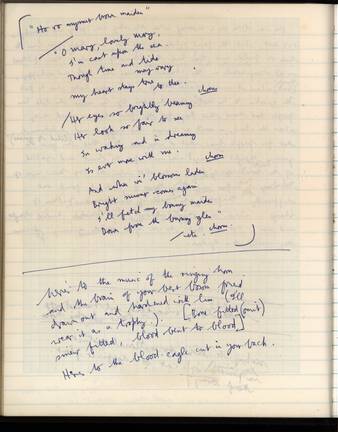 "Ho ro my nut brown maiden"
"O mary, lovely mary,
I'm cast upon the sea
Though time and tide
may vary
my heart stays true to thee.
chorus
Her eyes so brightly beaming
Her look so fair to see
In waking and in dreaming
Is ever more with me.
chorus
And when wi' blossom laden
Bright summer comes again
I'll fetch my bonny maiden
Down from the bonny glen"
etc. chorus
Here's to the music of the ringing horn
and the brain of your best
drawn out and hardened with lime (I'll
wear it as a trophy). [ fitted (omit)
sinew fitted, blood bent to blood]
Here's to the blood-eagle cut in your back.